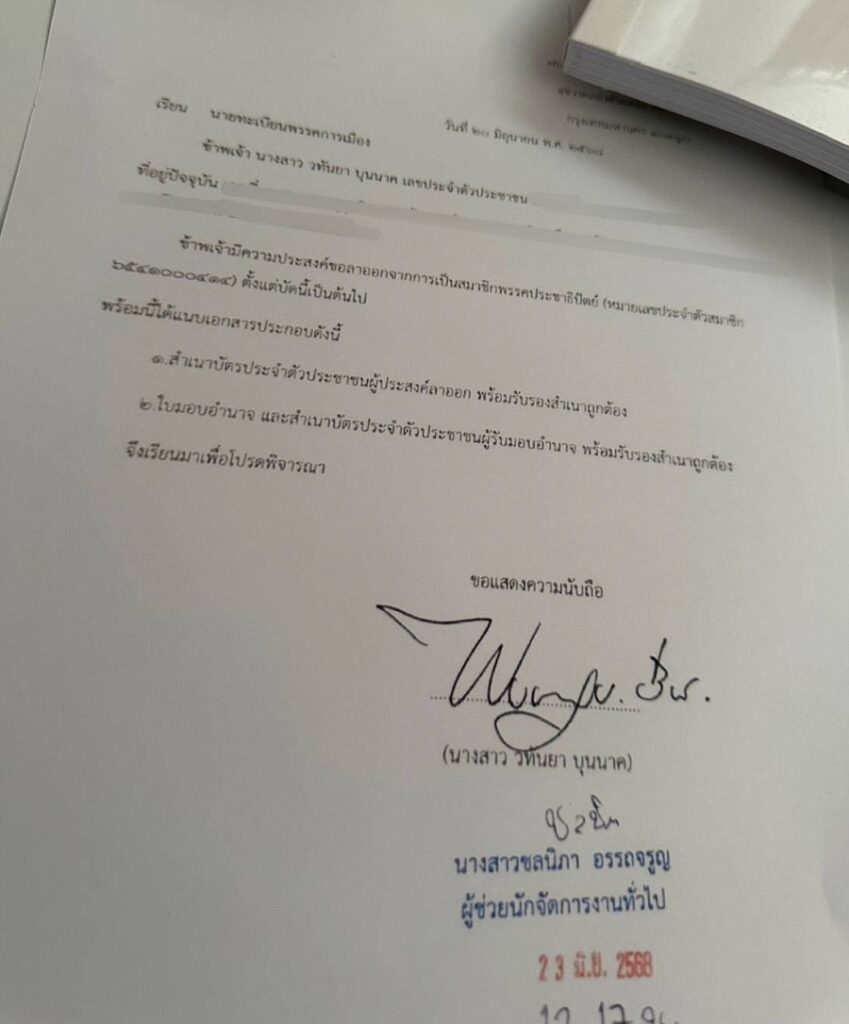 กรุงเทพมหานคร
วันที่ ๒๐ มิถุนายน พ.ศ. ๒๕๖๘
เรียน นายทะเบียนพรรคการเมือง
ข้าพเจ้า นางสาว วทันยา บุนนาค เลขประจำตัวประชาชน
ที่อยู่ปัจจุบัน
ข้าพเจ้ามีความประสงค์ขอลาออกจากการเป็นสมาชิกพรรคประชาธิปัตย์ (หมายเลขประจำตัวสมาชิก
๖๕๔๑๐๐๐๕๑๔) ตั้งแต่บัดนี้เป็นต้นไป
พร้อมนี้ได้แนบเอกสารประกอบดังนี้
๑.สำเนาบัตรประจำตัวประชาชนผู้ประสงค์ลาออก พร้อมรับรองสำเนาถูกต้อง
๒.ใบมอบอำนาจ และสำเนาบัตรประจำตัวประชาชนผู้รับมอบอำนาจ พร้อมรับรองสำเนาถูกต้อง
จึงเรียนมาเพื่อโปรดพิจารณา
ขอแสดงความนับถือ
(นางสาว วทันยา บุนนาค)
นางสาวชลนิภา อรรถจรูญ
ผู้ช่วยนักจัดการงานทั่วไป
23 มิ.ย. 2568